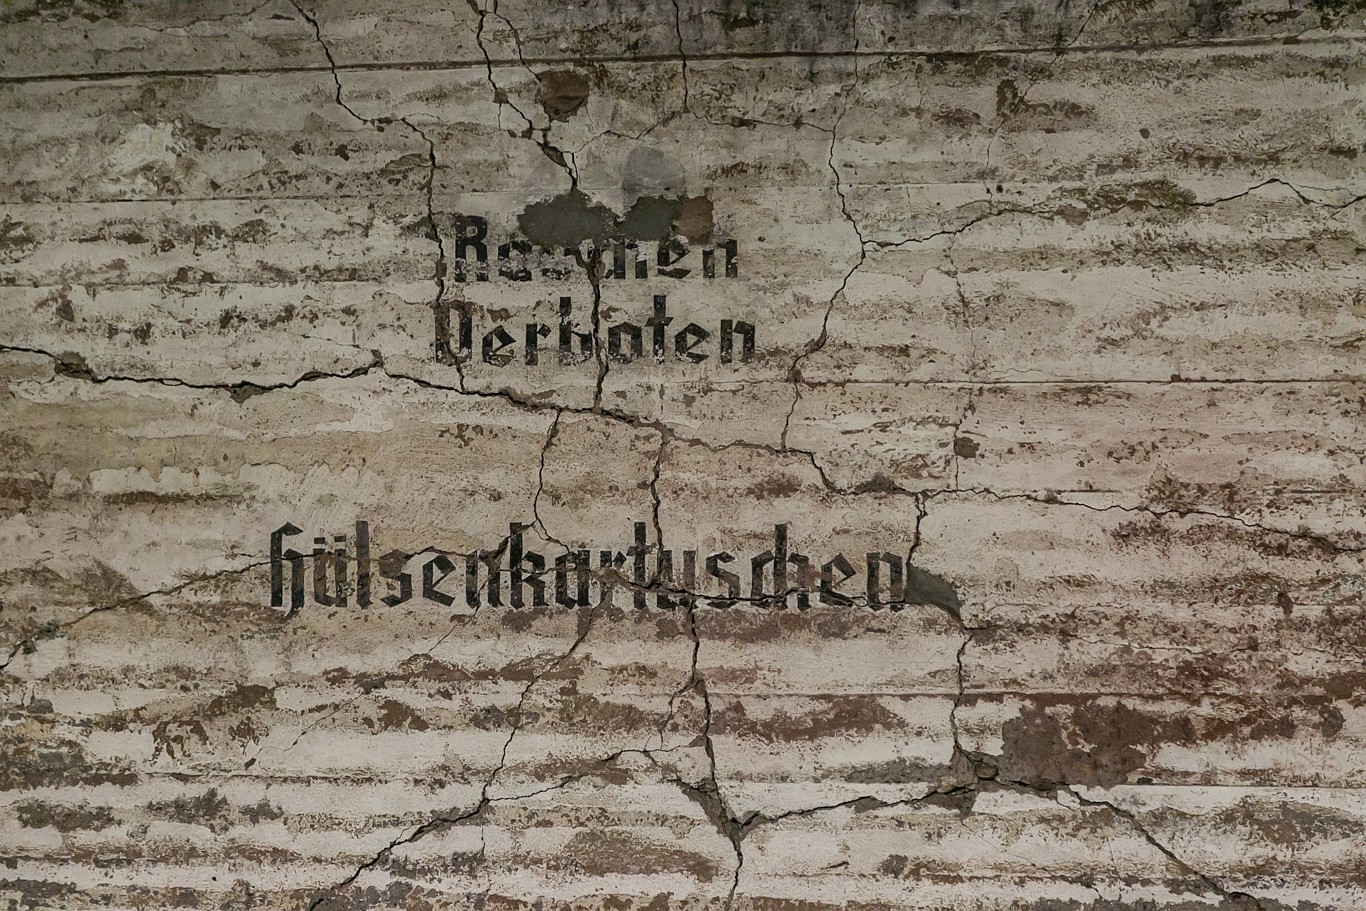 Rauchen
Verboten
Hülsenkartuschen